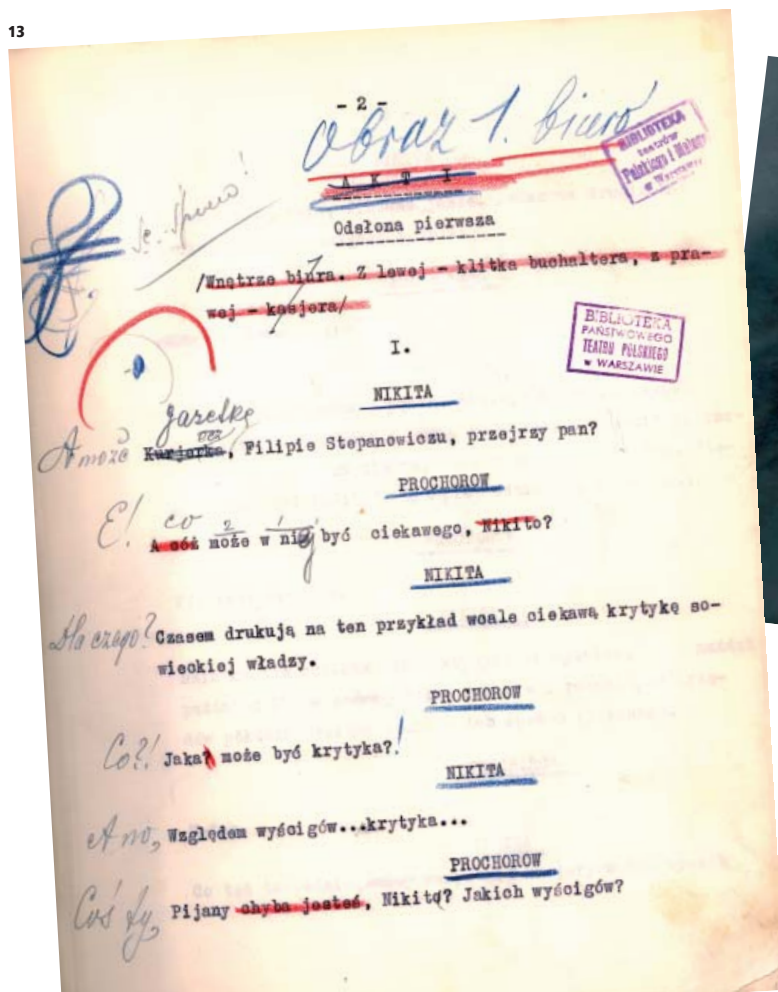 13
- 2 -
Obraz 1. biuro
BIBLIOTEKA
teatrów
Polskiego i Małego
w Warszawie
A K T I
Odsłona pierwsza
/Wnętrze biura. Z lewej - klitka buchaltera, z pra-
wej - kasjera/
BIBLIOTEKA
PAŃSTWOWEGO
TEATRU POLSKIEGO
w WARSZAWIE
I.
NIKITA
gazetkę
A może Kurjerka, Filipie Stepanowiczu, przejrzy pan?
PROCHOROW
co 2 1
E! A cóż może w niej być ciekawego, Nikito?
NIKITA
Dlaczego? Czasem drukują na ten przykład wcale ciekawą krytykę so-
wieckiej władzy.
PROCHOROW
Co?! Jaka? może być krytyka?!
NIKITA
A no, Względem wyścigów...krytyka...
PROCHOROW
Coś ty, Pijany chyba jesteś, Nikito? Jakich wyścigów?